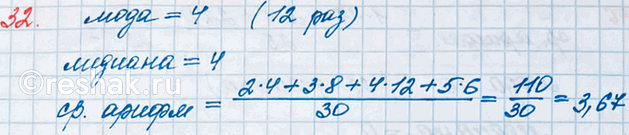 32. мода = 4 (12 раз)
медиана = 4
ср. арифм = (2·4+3·8+4·12+5·6)/30 = 110/30 = 3,67